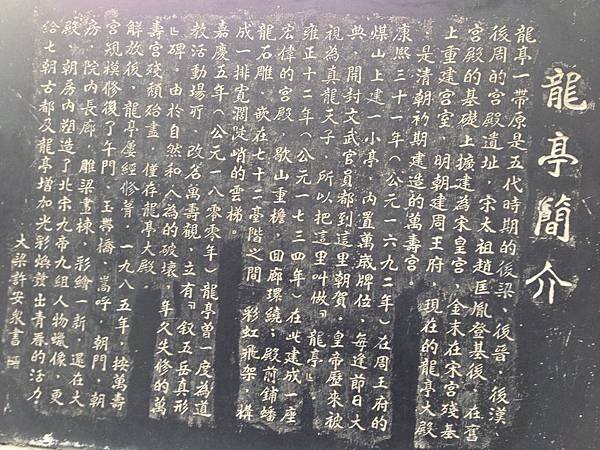 龍亭簡介
龍亭一帶原是五代時期的後梁．後晉．後漢．
後周的宮殿遺址．宋太祖趙匡胤登基後．在舊
宮殿的基礎上擴建為宋皇宮．金末在宋宮殘基
上重建宮室．明朝建周王府．現在的龍亭大殿
．是清朝初期建造的萬壽宮．
康熙三十一年（公元一六九二年）在周王府的
煤山上建一小亭．內置萬歲牌位．每逢節日大
典．開封文武官員都到這里朝賀．皇帝歷來被
視為真龍天子．所以把這里叫做『龍亭』．
雍正十二年（公元一七三四年）在此建成一座
宏偉的宮殿．歇山重檐．回廊環繞；殿前鋪蟠
龍石雕．嵌在七十二臺階之間．彩虹飛架．構
成一排寬濶陡峭的雲梯．
嘉慶五年（公元一八零零年）龍亭曾一度為道
教活動場所．改名萬壽觀．立有『叙五岳真形
』碑．由於自然和人為的破壞．年久失修的萬
壽宮殘頹殆盡．僅存龍亭大殿．
解放後．龍亭屢經修葺．一九八五年．按萬壽
宮規模修復了午門．玉帶橋．嵩呼．朝門．朝
房．院內長廊．雕梁畫棟．彩繪一新．還在大
殿．朝房內塑造了北宋九帝九組人物蠟像．更
給七朝古都及龍亭增加光彩煥發出青春的活力
大梁許安泉書